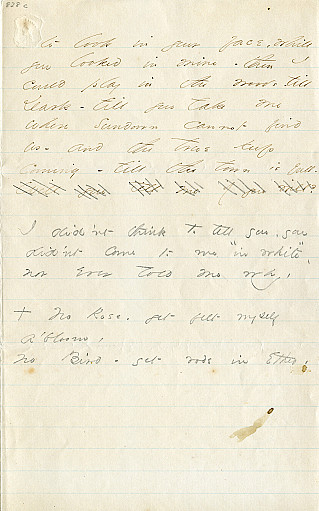 828 c
to look in your face, while
you looked in mine - then I
could play in the woods - till
Dark - till you take me
where Sundown cannot find
us - and the true keep
coming - till the town is full.
Will you tell me if you will?
I did'nt think to tell you, you
did'nt come to me "in white",
nor ever told me why,
+ No Rose, yet felt myself
a'bloom,
No Bird - yet rode in Ether,